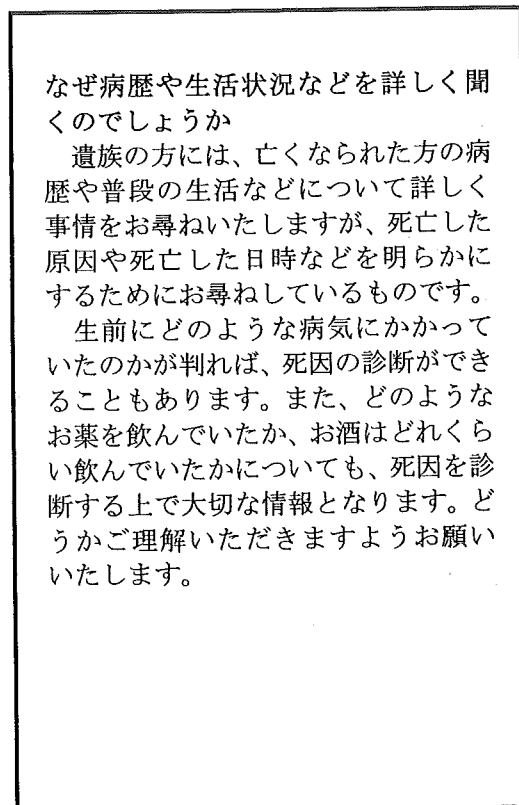 なぜ病歴や生活状況などを詳しく聞
くのでしょうか
　遺族の方には、亡くなられた方の病
歴や普段の生活などについて詳しく
事情をお尋ねいたしますが、死亡した
原因や死亡した日時などを明らかに
するためにお尋ねしているものです。
　生前にどのような病気にかかって
いたのかが判れば、死因の診断ができ
ることもあります。また、どのような
お薬を飲んでいたか、お酒はどれくら
い飲んでいたかについても、死因を診
断する上で大切な情報となります。ど
うかご理解いただきますようお願い
いたします。